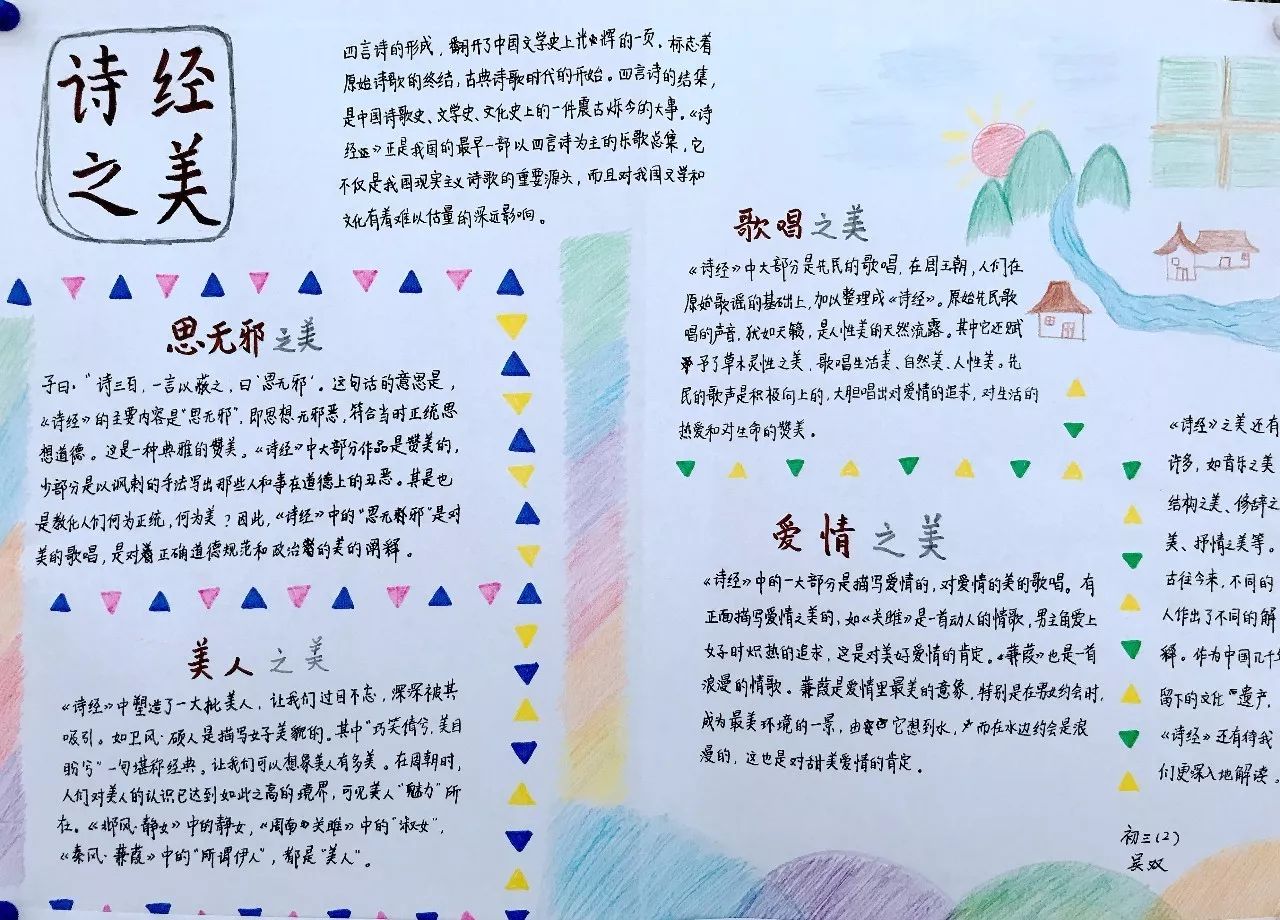 诗经
之美
四言诗的形成，翻开了中国文学史上光辉的一页，标志着
原始诗歌的终结，古典诗歌时代的开始。四言诗的结集，
是中国诗歌史、文学史、文化史上的一件震古烁今的大事。《诗
经》正是我国的最早一部以四言诗为主的乐歌总集，它
不仅是我国现实主义诗歌的重要源头，而且对我国文学和
文化有着难以估量的深远影响。
思无邪之美
子曰：“诗三百，一言以蔽之，曰‘思无邪’。这句话的意思是，
《诗经》的主要内容是“思无邪”，即思想无邪恶，符合当时正统思
想道德。这是一种典雅的赞美。《诗经》中大部分作品是赞美的，
少部分是以讽刺的手法写出那些人和事在道德上的丑恶。其是也
是教化人们何为正统，何为美？因此，《诗经》中的“思无邪”是对
美的歌唱，是对着正确道德规范和政治的美的阐释。
美人之美
《诗经》中塑造了一大批美人，让我们过目不忘，深深被其
吸引。如卫风·硕人是描写女子美貌的。其中“巧笑倩兮，美目
盼兮”一句堪称经典。让我们可以想象美人有多美。在周朝时，
人们对美人的认识已达到如此之高的境界，可见美人“魅力”所
在。《邶风·静女》中的静女，《周南》关雎》中的“淑女”，
《秦风·蒹葭》中的“所谓伊人”，都是“美人”。
歌唱之美
《诗经》中大部分是先民的歌唱，在周王朝，人们在
原始歌谣的基础上，加以整理成《诗经》。原始先民歌
唱的声音，犹如天籁，是人性美的天然流露。其中它还赋
予了草木灵性之美，歌唱生活美、自然美、人性美。先
民的歌声是积极向上的，大胆唱出对爱情的追求，对生活的
热爱和对生命的赞美。
爱情之美
《诗经》中的一大部分是描写爱情的，对爱情的美的歌唱。有
正面描写爱情之美的，如《关雎》是一首动人的情歌，男主角爱上
女子时炽热的追求，这是对美好爱情的肯定。《蒹葭》也是一首
浪漫的情歌。蒹葭是爱情里最美的意象，特别是在男女约会时，
成为最美环境的一景，由它想到水，而在水边约会是浪
漫的，这也是对甜美爱情的肯定。
《诗经》之美还有
许多，如音乐之美
结构之美、修辞之
美、抒情之美等。
古往今来，不同的
人作出了不同的解
释。作为中国几千年
留下的文化遗产，
《诗经》还有待我
们更深入地解读。
初三(2)
吴双